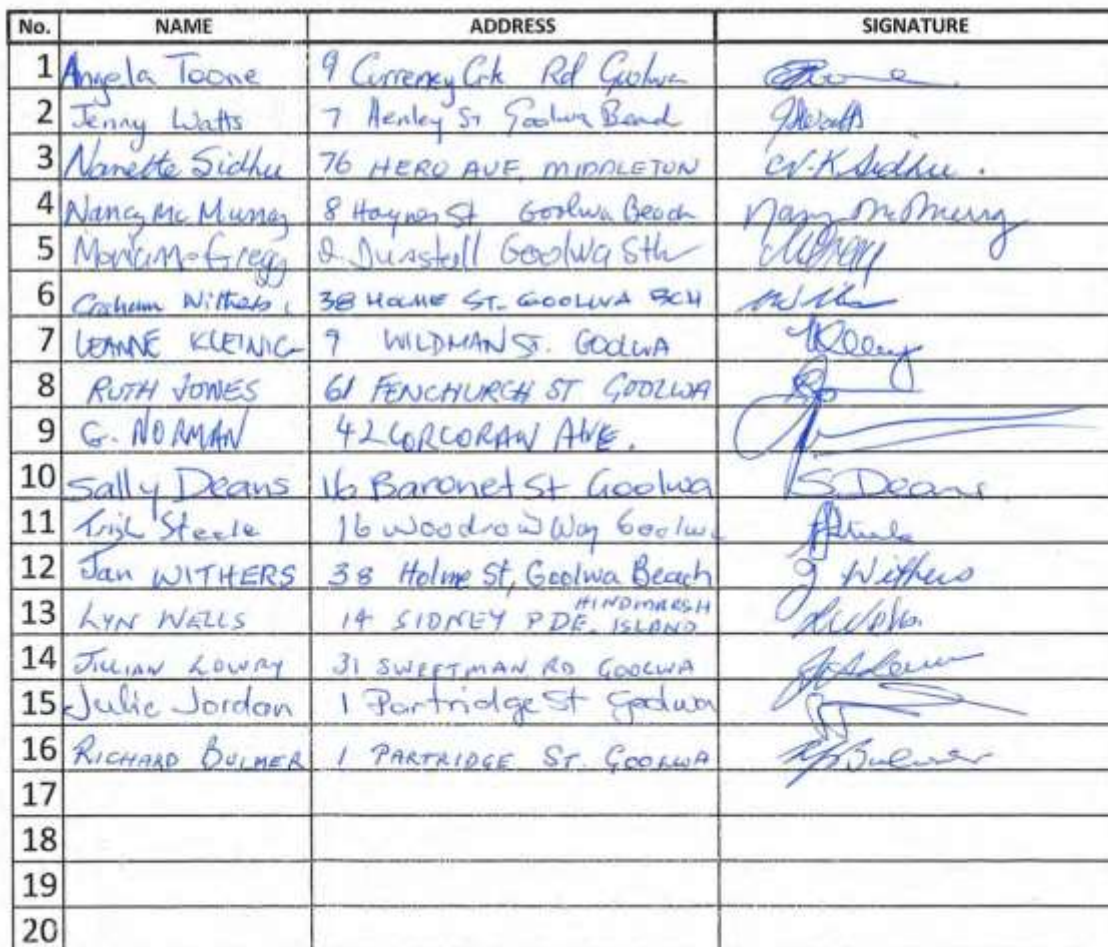 No. NAME ADDRESS SIGNATURE
1 Angela Toone 9 Currency Crk Rd Goolwa
2 Jenny Watts 7 Henley St Goolwa Beach JWatts
3 Nanette Sidhu 76 HERO AVE, MIDDLETON N.K Sidhu.
4 Nancy Mc Murray 8 Haynes St Goolwa Beach Nancy McMurray
5 Gregg 2 Dunstall Goolwa Sth
6 Graham Withers 38 HOLME ST. GOOLWA BCH
7 LEANNE KLEINIG 9 WILDMAN ST. GOOLWA
8 RUTH JONES 61 FENCHURCH ST GOOLWA
9 G. NORMAN 42 CORCORAN AVE.
10 Sally Deans 16 Baronet St Goolwa S. Deans
11 Trish Steele 16 Woodrow Way Goolwa
12 Jan WITHERS 38 Holme St, Goolwa Beach J Withers
13 LYN WELLS 14 SIDNEY PDE. HINDMARSH ISLAND
14 JILLIAN LOWRY 31 SWEETMAN RD GOOLWA
15 Julie Jordan 1 Partridge St Goolwa
16 RICHARD BULMER 1 PARTRIDGE ST. GOOLWA Bulmer
17
18
19
20